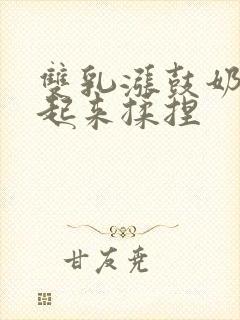 雙乳漲鼓奶
起来揉捏
甘友尭